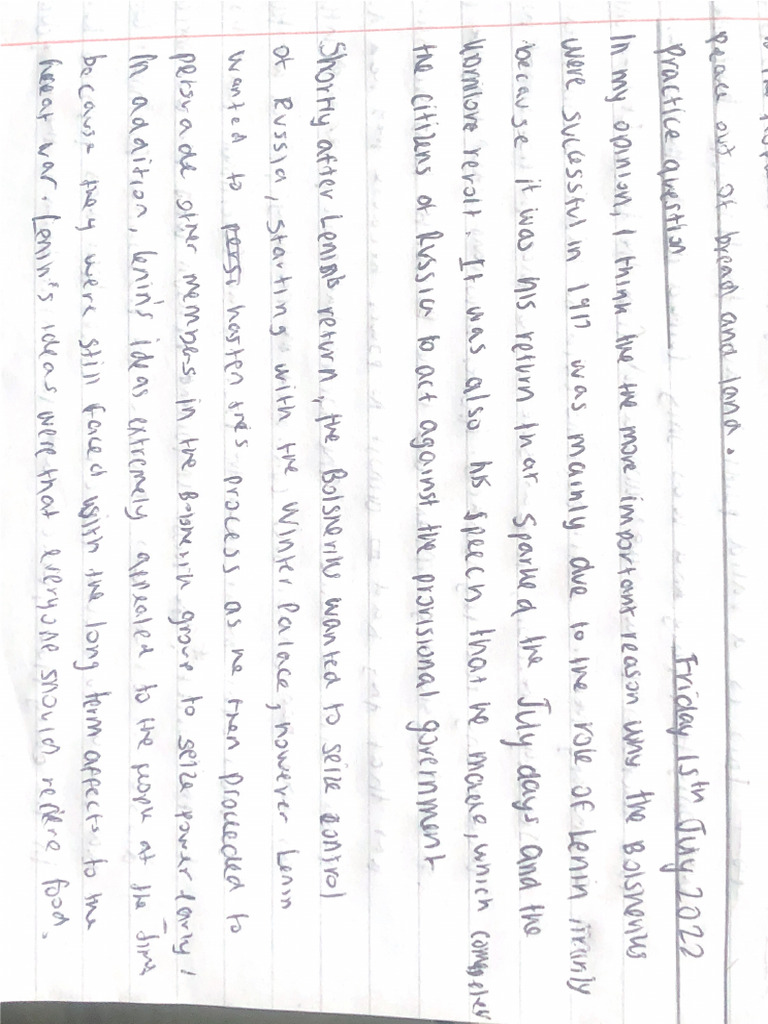 peace out of bread and land.
practice question Friday 15th July 2022
In my opinion, I think the the more important reason why the Bolsheviks
were sucessful in 1917 was mainly due to the role of Lenin mainly
because it was his return that sparked the July days and the
Kornilove revolt. It was also his speech that he made, which
the citizens of Russia to act against the provisional government
Shortly after Lenin's return, the Bolsheviks wanted to seize control
of Russia, starting with the Winter Palace, however Lenin
wanted to hasten this process as he then proceeded to
persuade other members in the Bolshevik group to seize power early,
In addition, Lenin's ideas extremely appealed to the people at the time
because they were still faced with the long term affects to the
war. Lenin's ideas were that everyone should food.